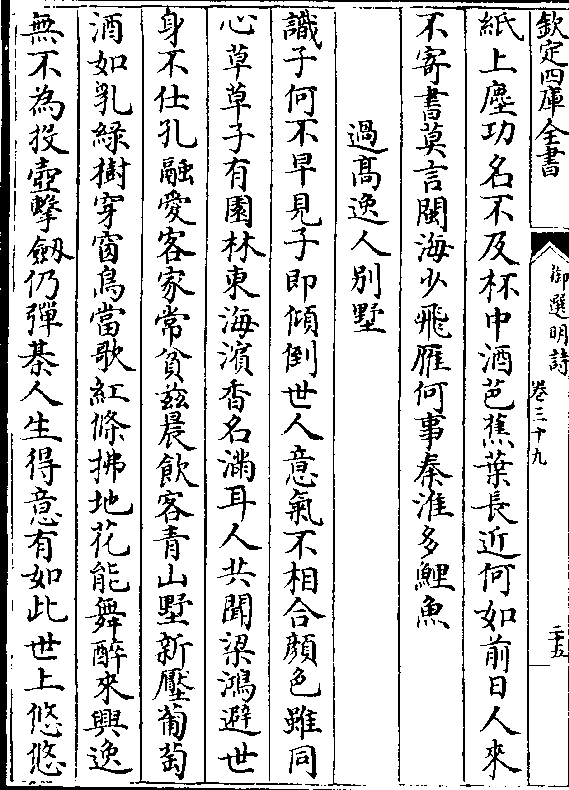 欽定四庫全書
御選明詩
卷三十九
二十五
紙上塵功名不及杯中酒芭蕉葉長近何如前日人來
不寄書莫言閩海少飛雁何事秦淮多鯉魚
過高逸人別墅
識子何不早見子即傾倒世人意氣不相合顔色雖同
心草草子有園林東海濱香名滿耳人共聞梁鴻避世
身不仕孔融愛客家常貧兹晨飲客青山墅新壓葡萄
酒如乳緑樹穿窗鳥當歌紅條拂地花能舞醉來興逸
無不為投壺擊劔仍彈棊人生得意有如此世上悠悠